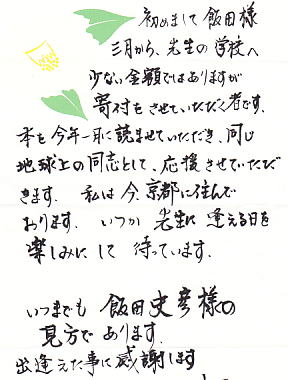 初めまして飯田様
三月から、先生の学校へ
少ない金額ではありますが
寄付をさせていただく者です。
本を今年一月に読ませていただき、同じ
地球上の同志として、応援させていただ
きます。私は今、京都に住んで
おります。いつか先生に逢える日を
楽しみにして待っています。
いつまでも飯田史彦様の
見方であります。
出逢えた事に感謝します